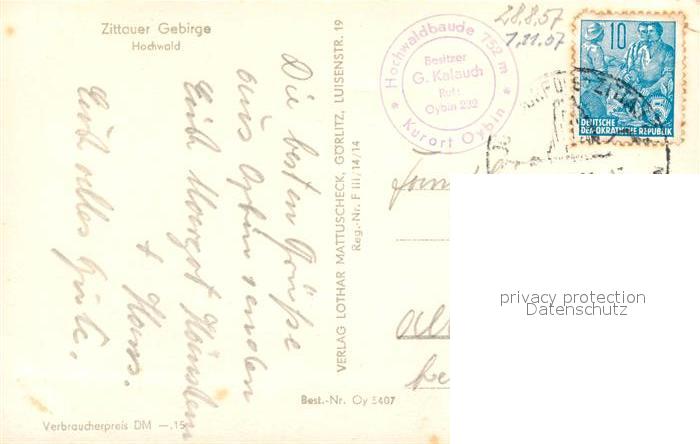 Zittauer Gebirge
Hochwald
Die besten Grüße
aus Oybin senden
Euch Margot
+ Hans.
Euch alles Gute.
Verbraucherpreis DM —.15
VERLAG LOTHAR MATTUSCHECK, GÖRLITZ, LUISENSTR. 19
Reg.-Nr. F III/14/14
Best.-Nr. Oy 5407
Hochwaldbaude 752 m
Besitzer
G. Kalauch
Ruf:
Oybin 232
* Kurort Oybin *
28.8.57
10
5
DEUTSCHE
DEMOKRATISCHE REPUBLIK
privacy protection
Datenschutz